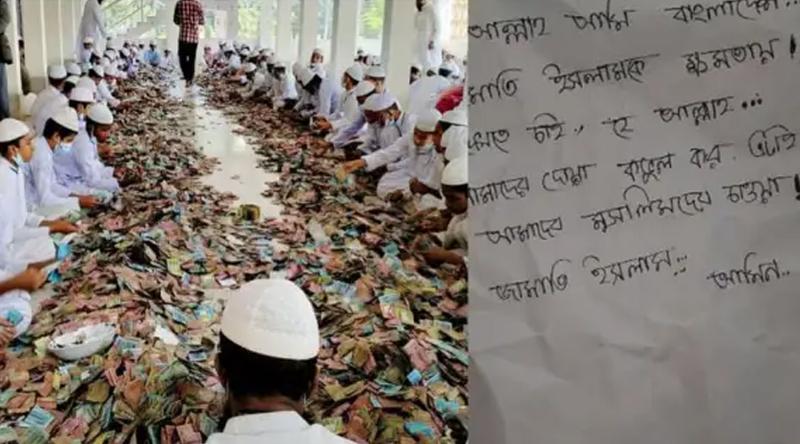 আল্লাহ আমি বাংলাদেশে...
মাতি ইসলামকে ক্ষমতায়।
খতে চাই,, হে আল্লাহ...
মাদের দোয়া কবুল কর, এটাই
আমাদের মুসলিমদের চাওয়া!
জামাতি ইসলাম;; আমিন..